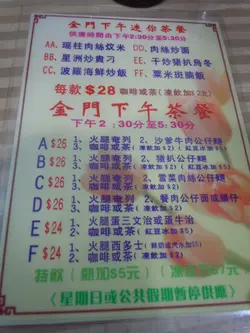 金門下午迷你茶餐
供應時間由下午2:30分至5:30分
AA. 瑤柱肉絲炆米 DD. 肉絲炒面
BB. 星洲炒貴刁 EE. 干炒豬扒烏冬
CC. 菠蘿海鮮炒飯 FF. 粟米斑腩飯
每款 $28 咖啡或茶(凍飲加2元)
金門下午茶餐
下午2:30分至5:30分
A $26 1、火腿奄列 2、沙爹牛肉公仔麵
3、咖啡或茶(凍飲加$2)
B $26 1、火腿奄列 2、豬扒公仔麵
3、咖啡或茶(凍飲加$2)
C $26 1、火腿奄列 2、雪菜肉絲公仔麵
3、咖啡或茶(凍飲加$2)
D $26 1、火腿奄列 2、餐肉公仔面或腸仔
3、咖啡或茶(凍飲加$2)
E $24 1、火腿蛋三文治或蛋牛治
2、咖啡或茶(凍飲加$2)
F $24 1、火腿西多士
2、咖啡或茶(凍飲加$2)
特飲(熱加$5元)
《星期日或公共假期暫停供應》